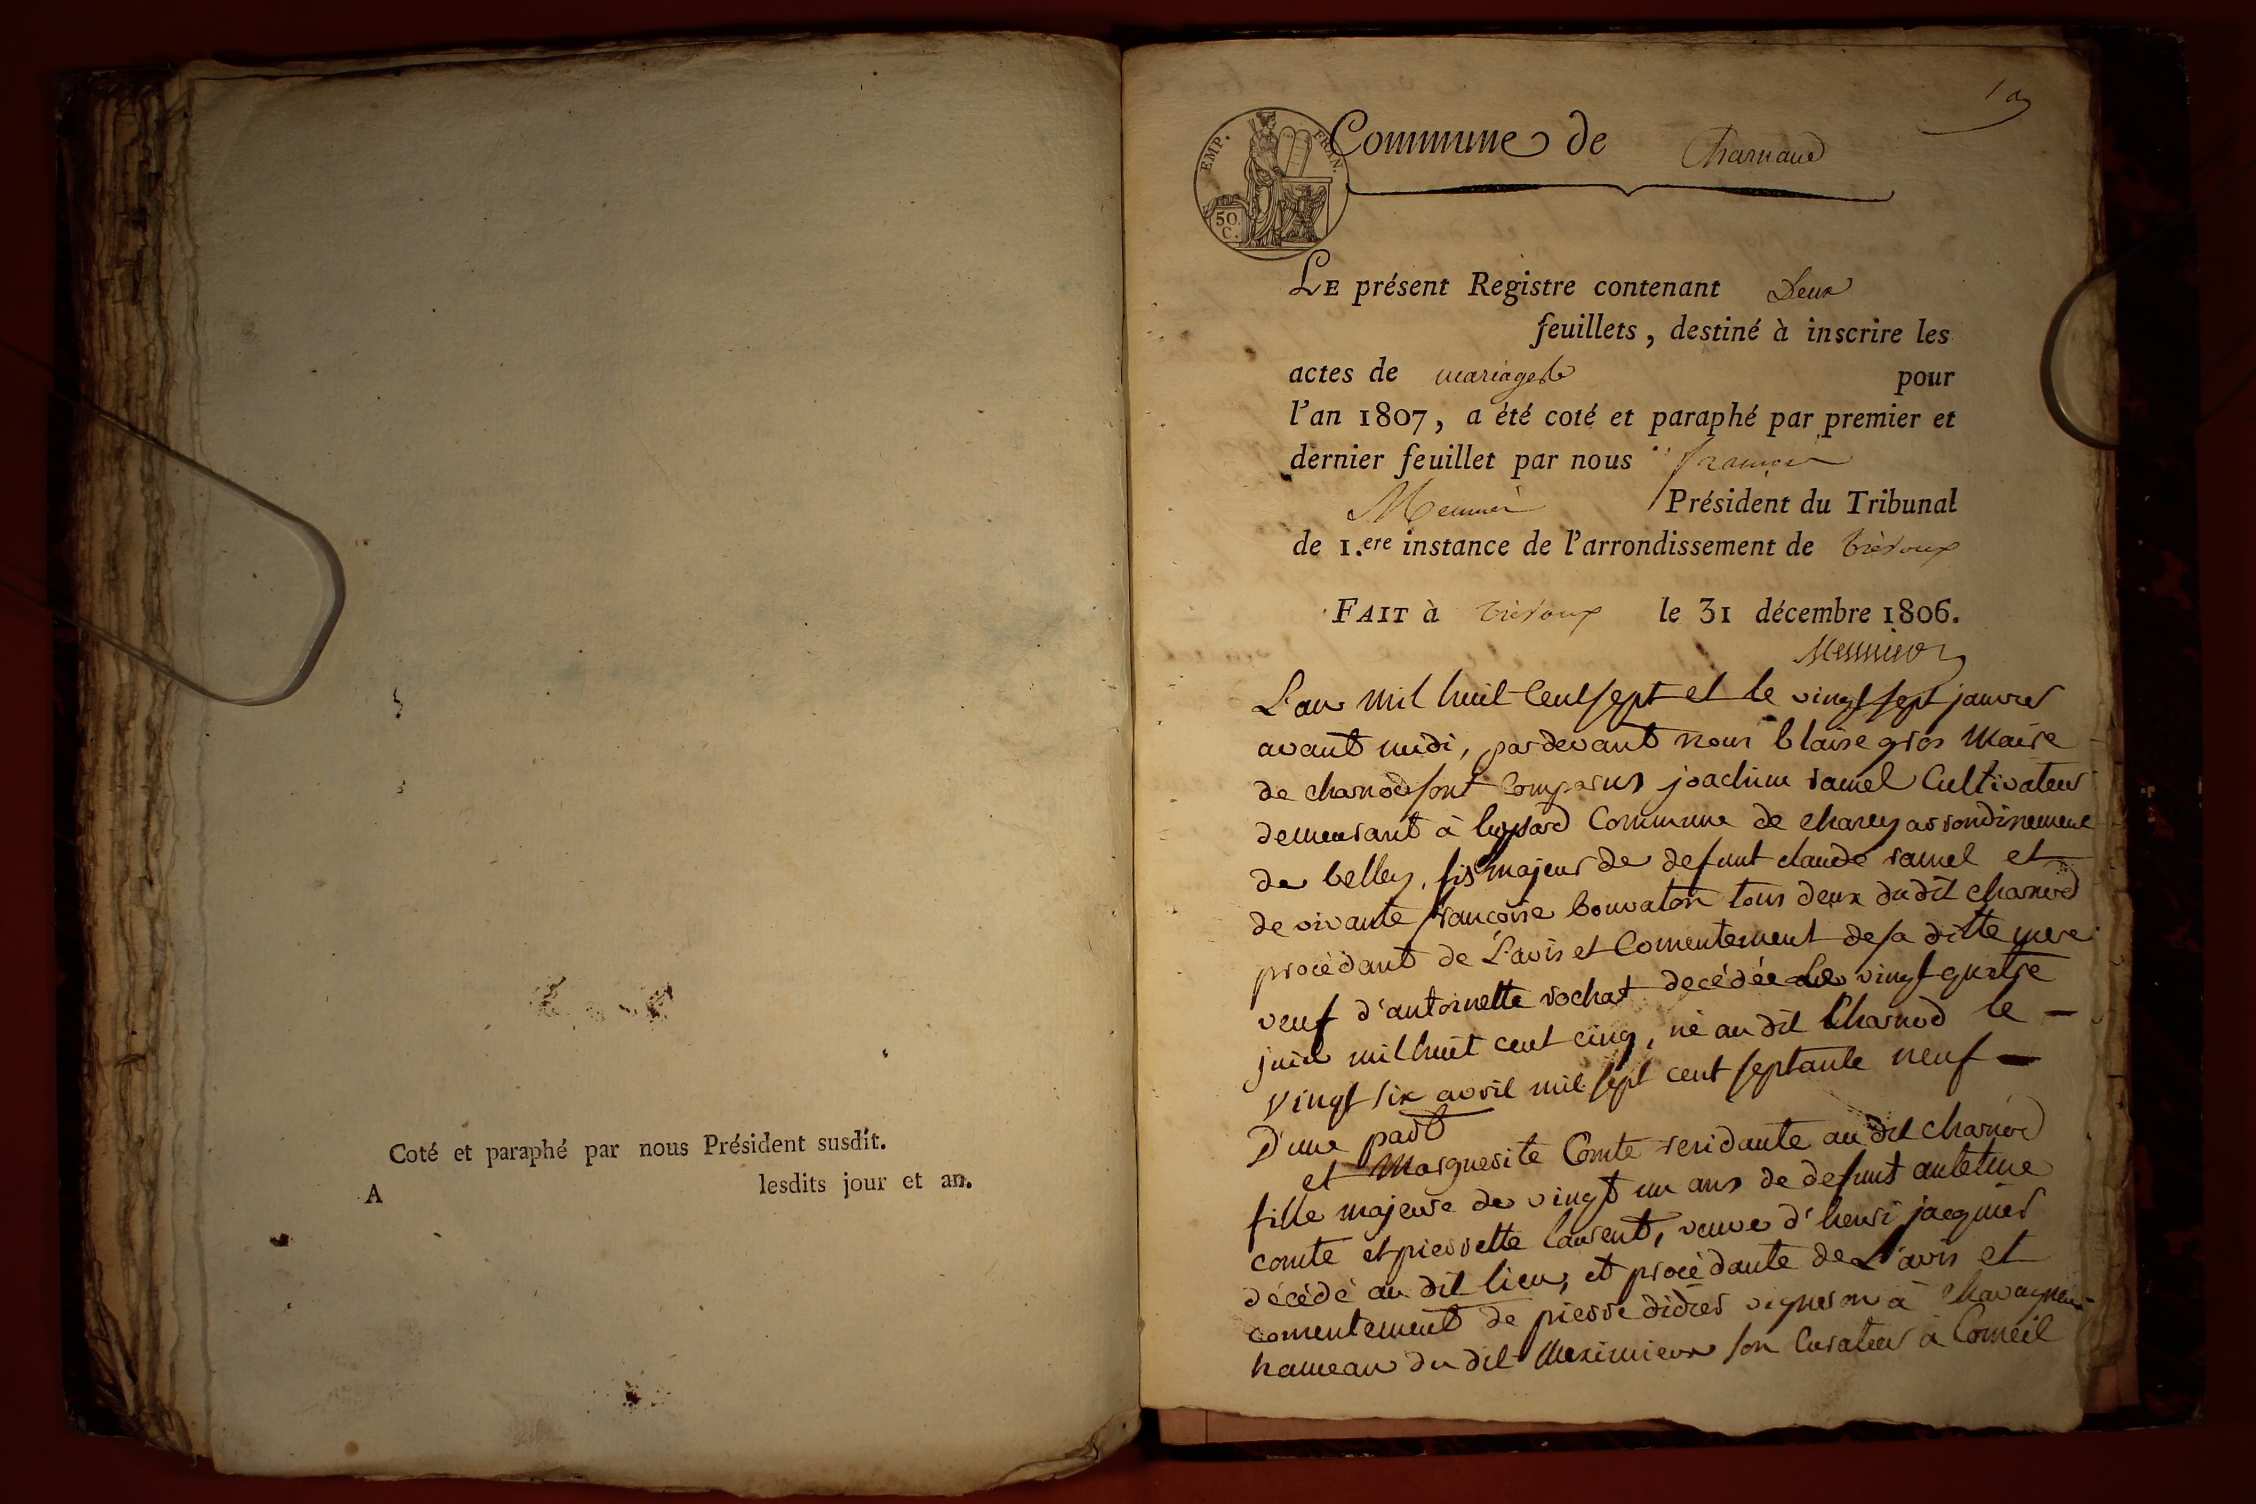 Coté et paraphé par nous Président susdit.
A lesdits jour et an.
1
EMP. FRAN.
50
C.
Commune de Charnaud
LE présent Registre contenant Deux
feuillets, destiné à inscrire les
actes de mariages pour
l'an 1807, a été coté et paraphé par premier et
dernier feuillet par nous
Meunier Président du Tribunal
de 1.ere instance de l'arrondissement de trévoux
FAIT à trévoux le 31 décembre 1806.
Meunier
L'an mil huit cent sept et le vingt sept janvier
avant midi, pardevant nous blaise gros Maire
de charnod sont Comparus joachim ramel Cultivateur
demeurant à Commune de charey arrondissement
de belley, fils majeur de defunt claude ramel et
de vivante francoise bouvaton tous deux du dit charnod
procèdant de L'avis et Consentement de sa ditte mere
veuf d'antoinette rochat decédée Le vingt quatre
juin mil huit cent cinq, né au dit Charnod le —
vingt six avril mil sept cent septante neuf —
D'une part
et Marguerite Comte residante au dit charnod
fille majeure de vingt un ans de defunt antelme
comte et pierrette laurent, veuve d'henri jacquier
décédé au dit lieu, et procèdante de L'avis et
consentement de pierre didier vigneron à
hameau du dit Meximieux son Curateur à Conseil